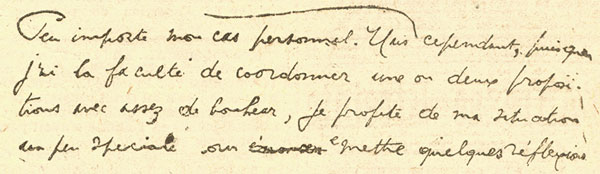 Peu importe mon cas personnel. Mais cependant, puisque
j'ai la faculté de coordonner une ou deux proposi-
tions avec assez de bonheur, je profite de ma situation
un peu speciale pour emettre quelques réflexions